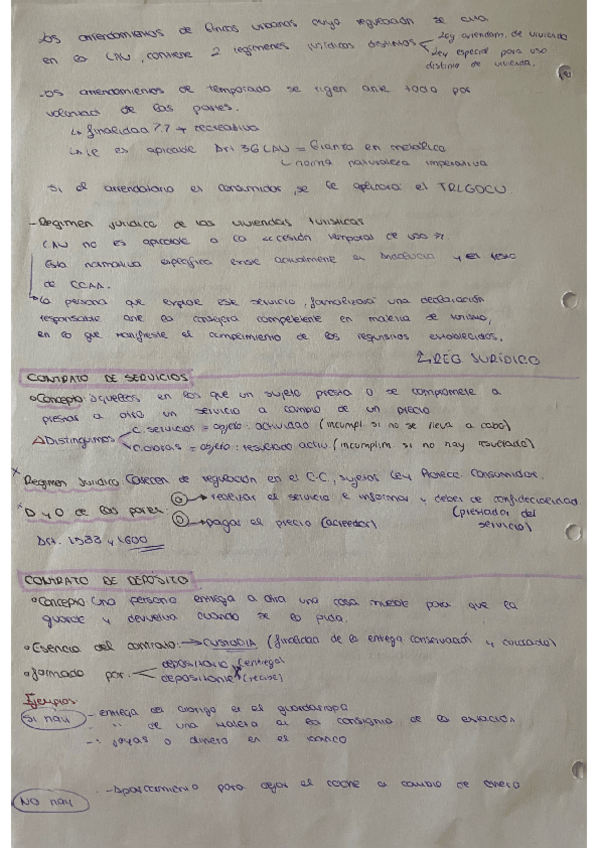 Los arrendamientos de fincas urbanas cuya regulación se
en la LAU, contiene 2 regímenes jurídicos distintos Ley arrendam. de vivienda
Ley especial para uso
distinto de vivienda.
Los arrendamientos de temporada se rigen ante todo por
voluntad de las partes.
↳ finalidad recreativa
es aplicable Art 36 LAU = Fianza en metálico
norma naturaleza imperativa
Si el arrendatario es consumidor, se le aplicará el TRLGDCU
- Régimen jurídico de las viviendas turísticas
LAU no es aplicable a la cesión temporal de uso
Esta normativa específica existe actualmente en Andalucía y el resto
de CCAA.
La persona que explote este servicio, formalizará una declaración
responsable ante la consejería competente en materia de turismo,
en la que manifieste el cumplimiento de los requisitos establecidos.
2. REG JURÍDICO
CONTRATO DE SERVICIOS
Concepto: aquellos en los que un sujeto presta o se compromete a
prestar a otro un servicio a cambio de un precio
Distinguimos C. servicios = objeto: actividad (incumpl. si no se lleva a cabo)
C. obras = objeto: resultado activ. (incumplim. si no hay resultado)
Régimen Jurídico: Carecen de regulación en el C.C, Ley Protecc. Consumidor.
D y O de las partes: → realizar el servicio e informar y deber de confidecialidad
(prestador del
→ pagar el precio (acreedor) servicio)
Art. 1583 y 1600
CONTRATO DE DEPÓSITO
Concepto: Una persona entrega a otra una cosa mueble para que la
guarde y devuelva cuando se la pida.
Esencia del contrato: → CUSTODIA (finalidad de la entrega conservación y cuidado)
formado por: depositario (entrega)
depositante (recibe)
Ejemplos
Si hay - entrega del abrigo en el guardaropa
- " " de una maleta en la consigna de la estación
- " joyas o dinero en el banco
- Aparcamiento para dejar el coche a cambio de dinero
NO hay